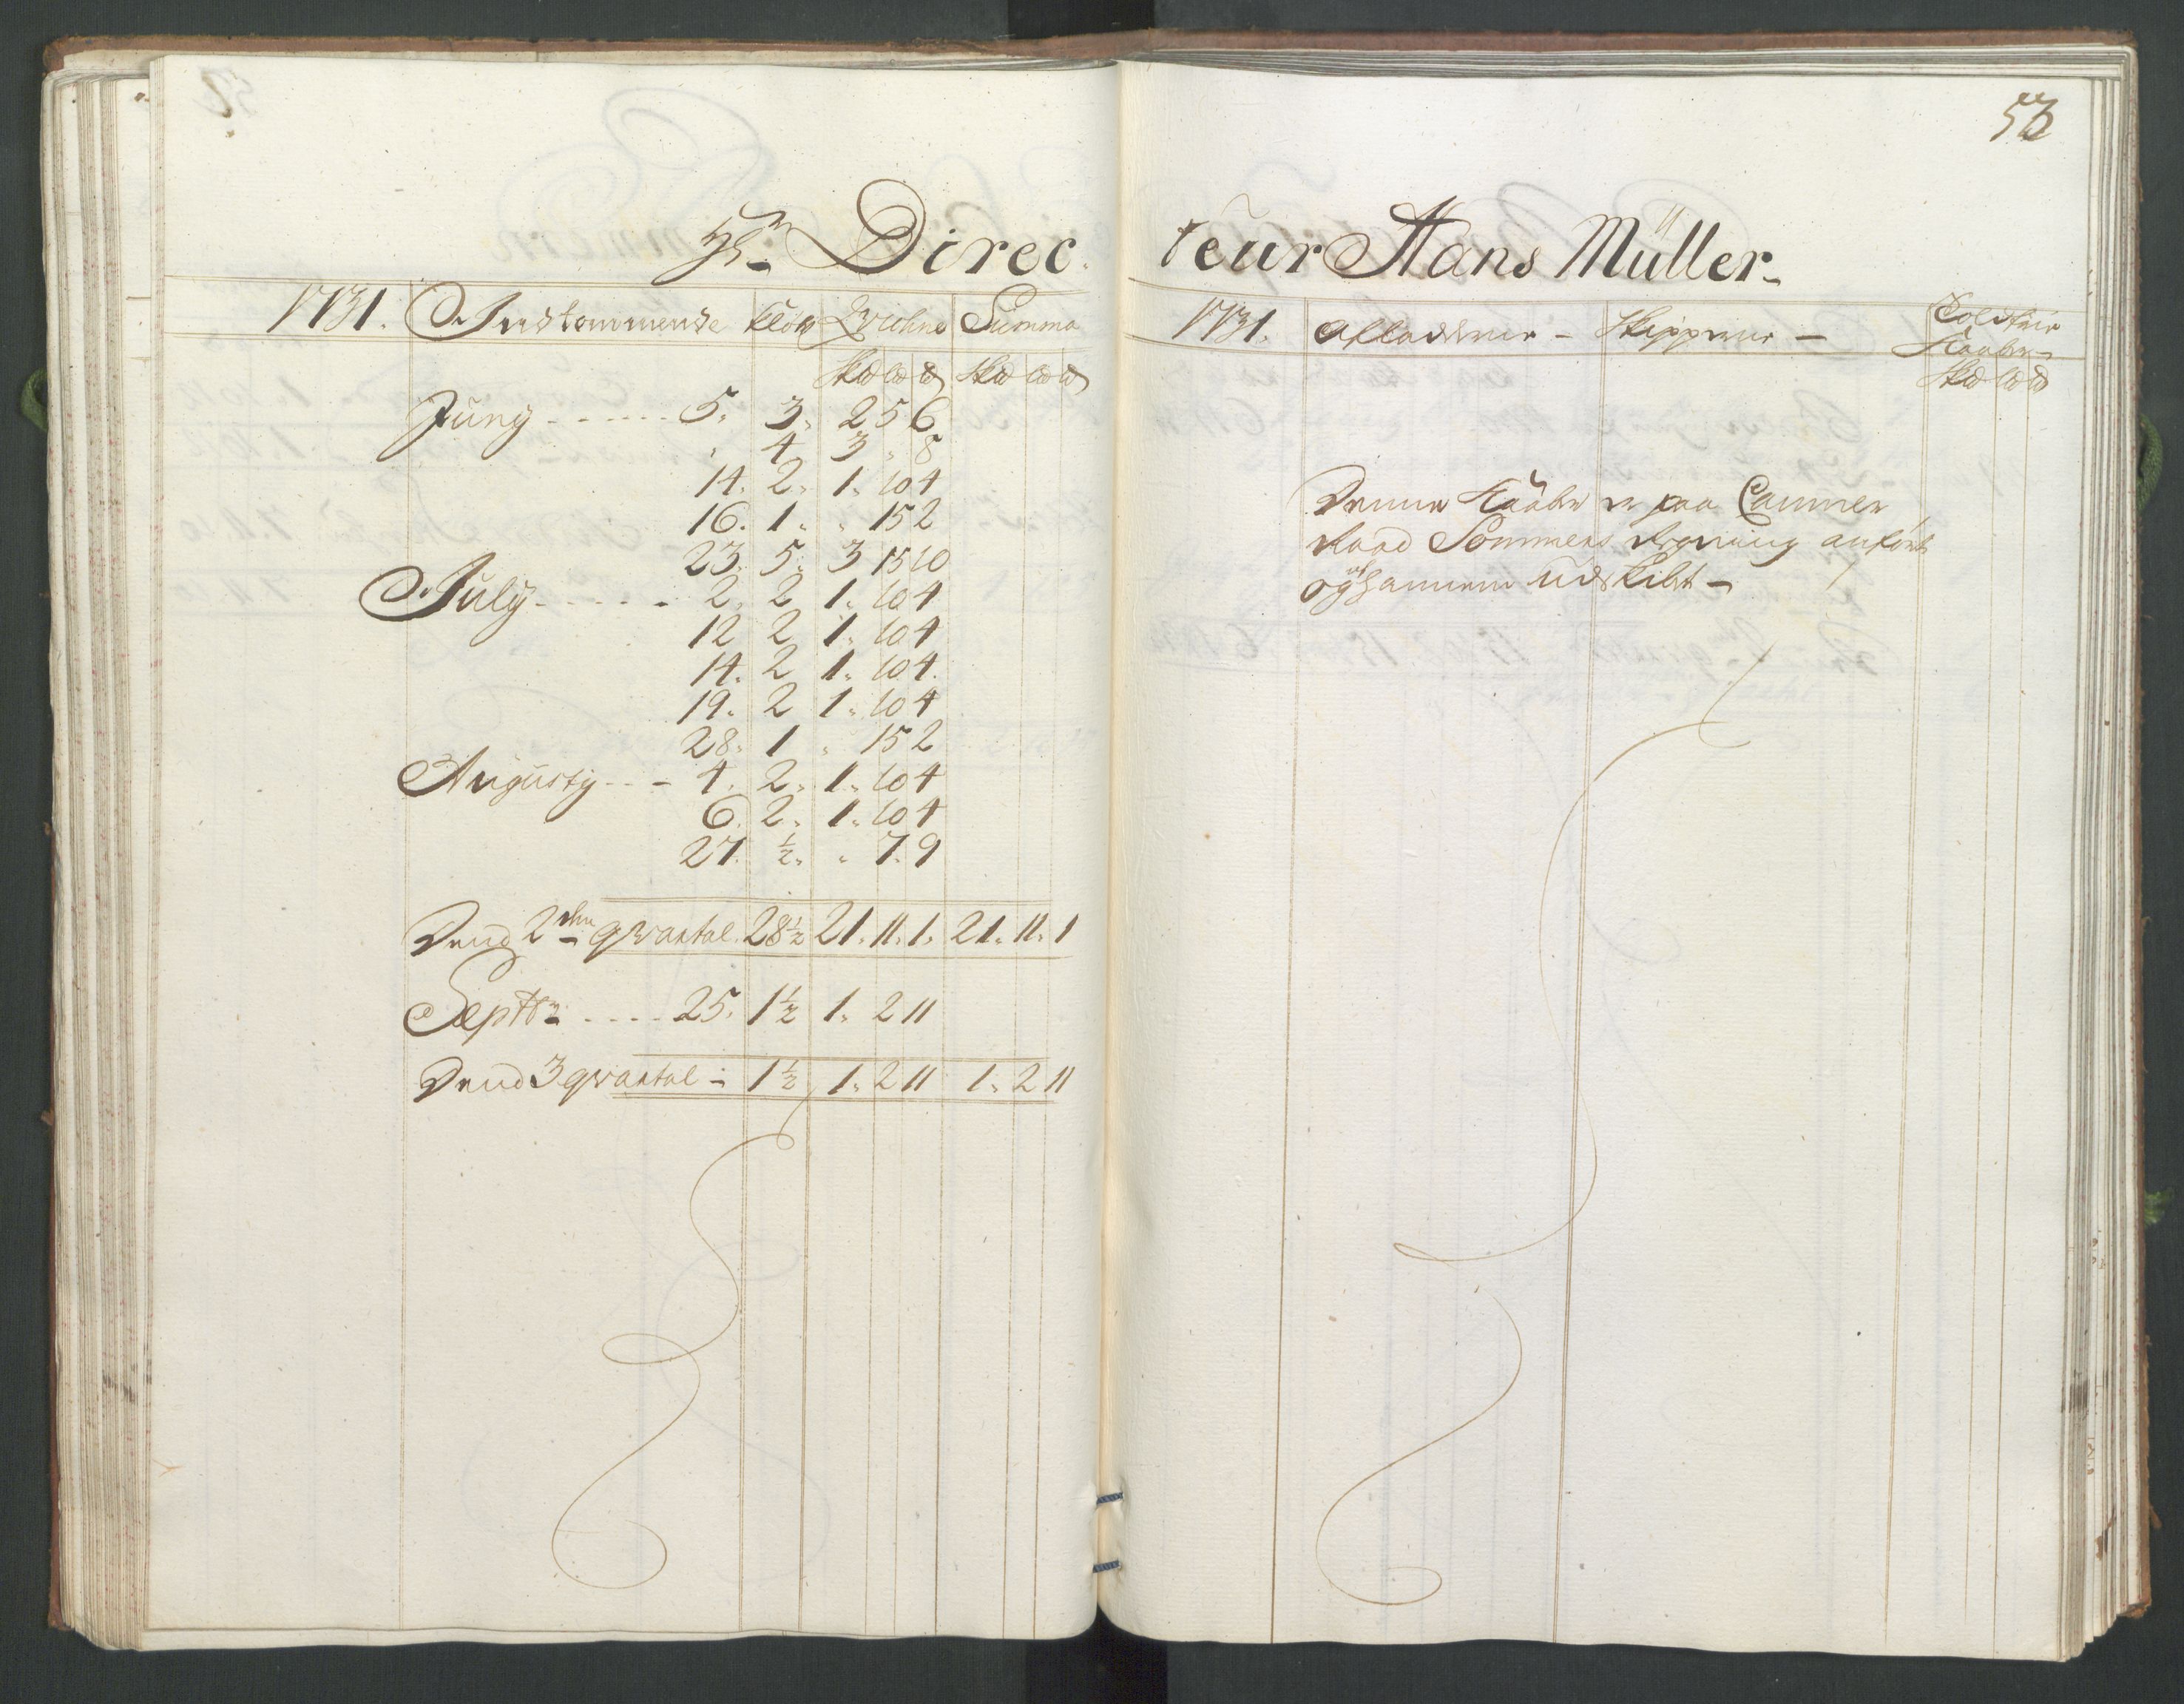 53
Hr. Direc
teur Hans Müller
1731. Indkommende Kløv Zviehne Summa
Skd Ld d Skd Ld d
Juny - - - - - - 5. 3. 2 5 6
" 4 3 " 8
14. 2. 1. 10 4
16. 1. " 15 2
23. 5. 3 15 10
July - - - - - 2. 2 1. 10 4
12 2 1. 10 4
14. 2 1. 10 4.
19. 2 1. 10 4
28. 1 " 15 2
Augusty - - - 4. 2. 1. 10 4
6. 2. 1. 10 4
27. ½. " 7. 9
Dend 2den qvartal. 28½ 21. 11. 1. 21. 11. 1
Septbr - - - - 25. 1½ 1. 2 11
Dend 3 qvartal - 1½ 1. 2 11 1. 2 11
1731. Afladdener - Skippeme -
Toldfrie
Kaaber
Skd Ld d
Denne Kaaber er paa Cammer
Raad Sommers Regning anført
og sammen udskibt -